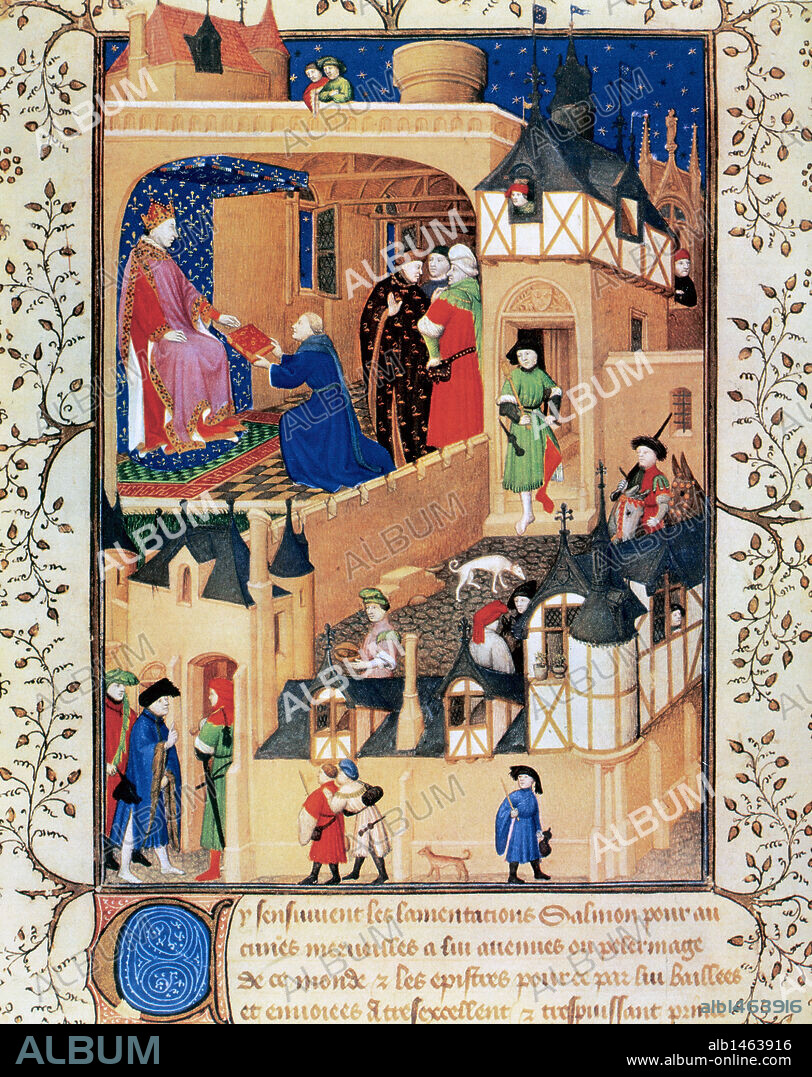 Cy sensuivent les lamentacions Salmon pour au
cunes merveilles a lui avenues ou pelermage
de ce monde & les epistres pour & par lui baillees
et envoiees A tresexcellent & trespuissant prince
alb1463916
ALBUM
alb1463916
www.album-online.com